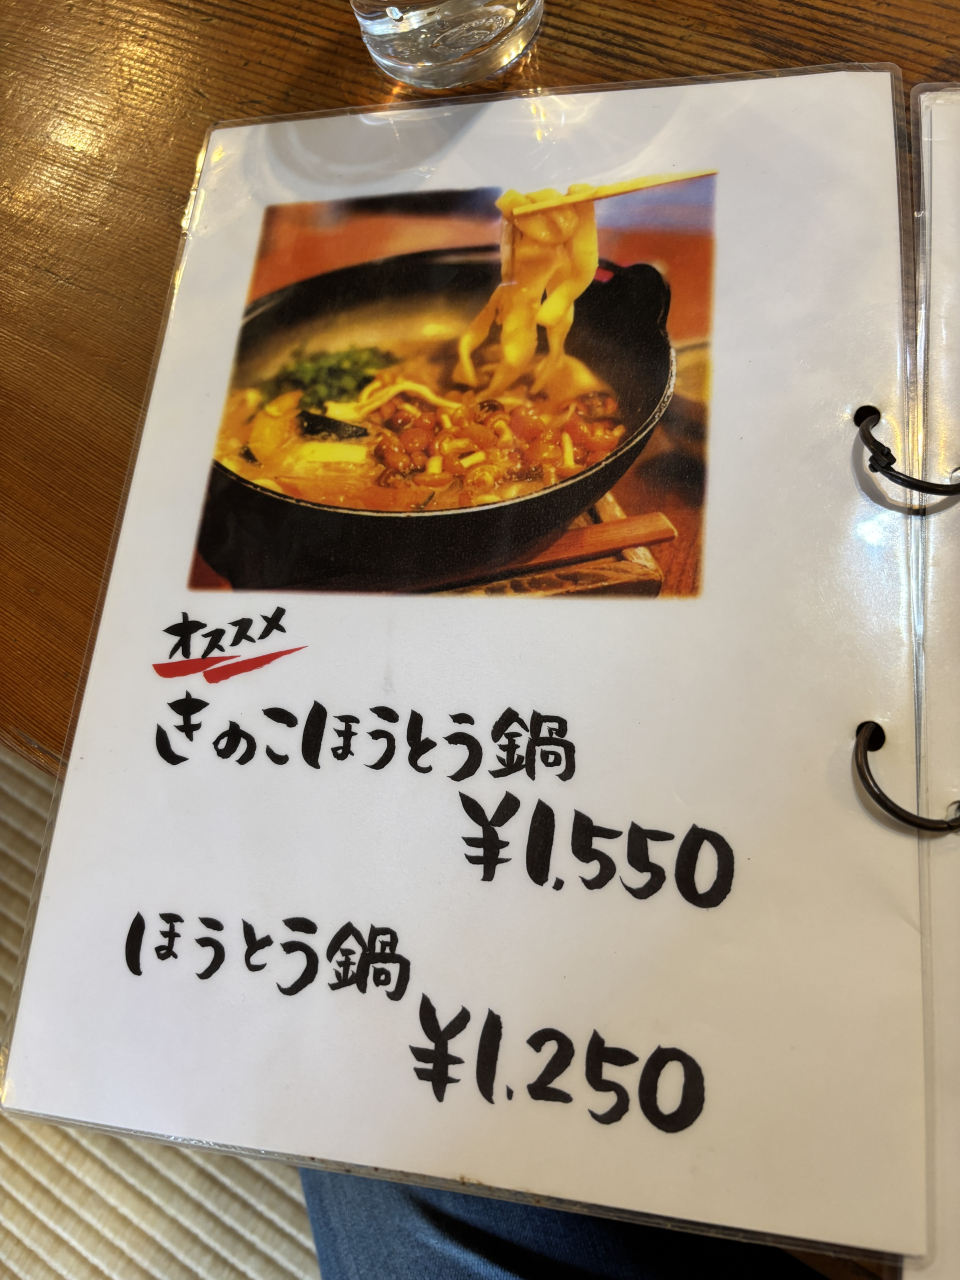 オススメ
きのこほうとう鍋
¥1,550
ほうとう鍋
¥1,250